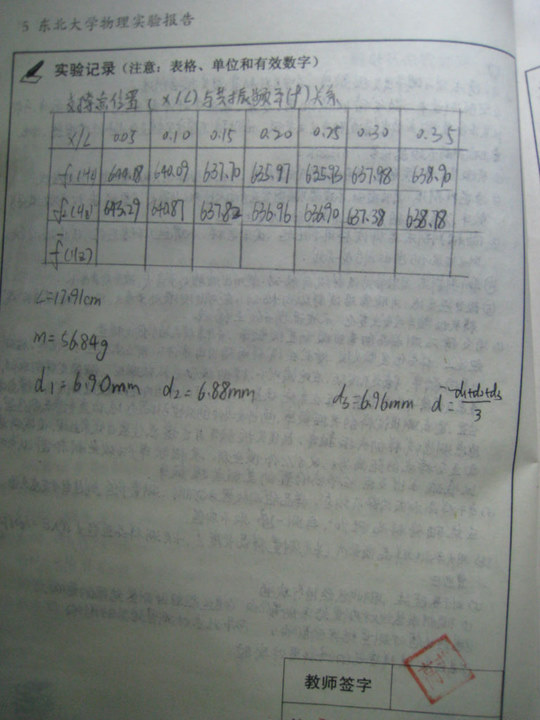 5 东北大学物理实验报告
实验记录（注意：表格、单位和有效数字）
支撑点位置（x/L）与共振频率(f)关系
x/L 0.05 0.10 0.15 0.20 0.25 0.30 0.35
f₁(Hz) 640.09 637.70 635.97 637.98 638.90
f₂(Hz) 643.29 640.87 637.82 636.96 636.90 637.38 638.78
f̄(Hz)
L=17.91cm
m=56.84g
d₁=6.90mm d₂=6.88mm d₃=6.96mm d̄=(d₁+d₂+d₃)/3
教师签字